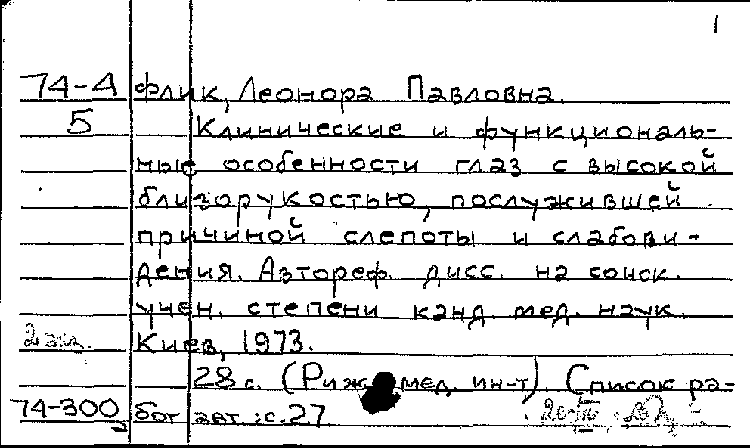 1
74-4 Флик, Леонора Павловна.
5 Клинические и функциональ-
ные особенности глаз с высокой
близорукостью, послужившей
причиной слепоты и слабови-
дения. Автореф. дисс. на соиск.
учен. степени канд. мед. наук
2 экз. Киев, 1973.
28 с. (Риж. мед. ин-т). Список ра-
74-300 бот авт.: с. 27
2